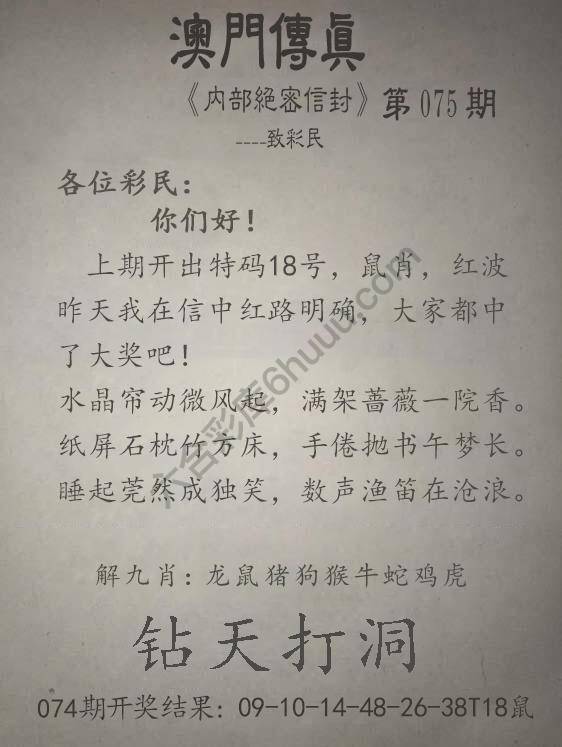 澳門傳眞
《内部絕密信封》第075期
----致彩民
各位彩民：
你们好！
上期开出特码18号，鼠肖，红波
昨天我在信中红路明确，大家都中
了大奖吧！
水晶帘动微风起，满架蔷薇一院香。
纸屏石枕竹方床，手倦抛书午梦长。
睡起莞然成独笑，数声渔笛在沧浪。
六合彩库6huuu.com
解九肖：龙鼠猪狗猴牛蛇鸡虎
钻天打洞
074期开奖结果：09-10-14-48-26-38T18鼠